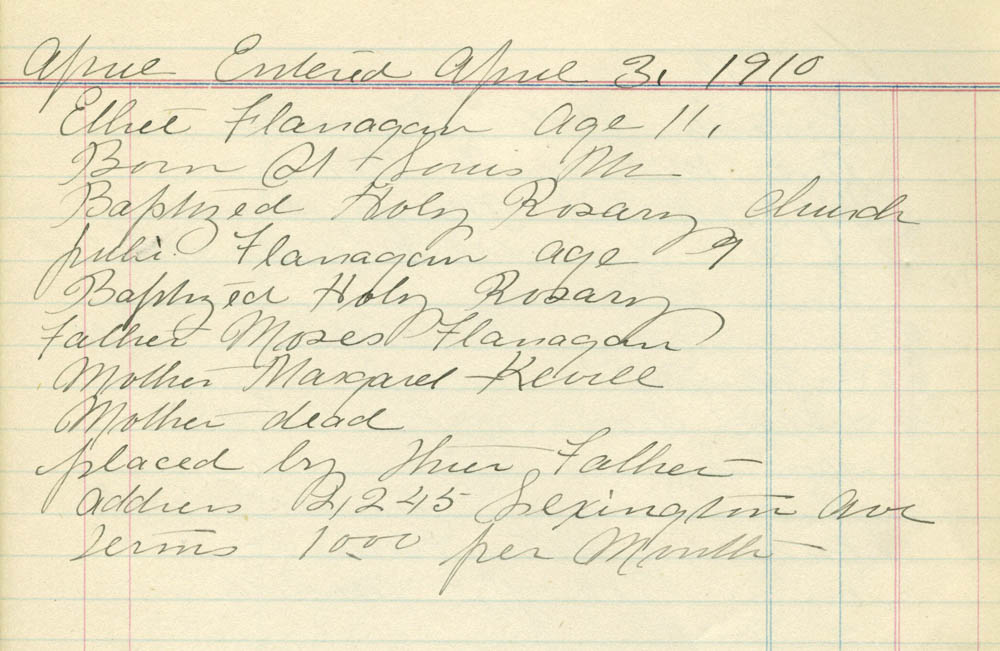 April Entered April 3, 1910
Flanagan age 11,
Born St Louis Mo
Baptized Holy Rosary Church
Julia Flanagan age 9
Baptized Holy Rosary
Father Moses Flanagan
Mother Margaret
Mother dead
placed by Thier Father
address Lexington Ave
Terms 10 00 per Month